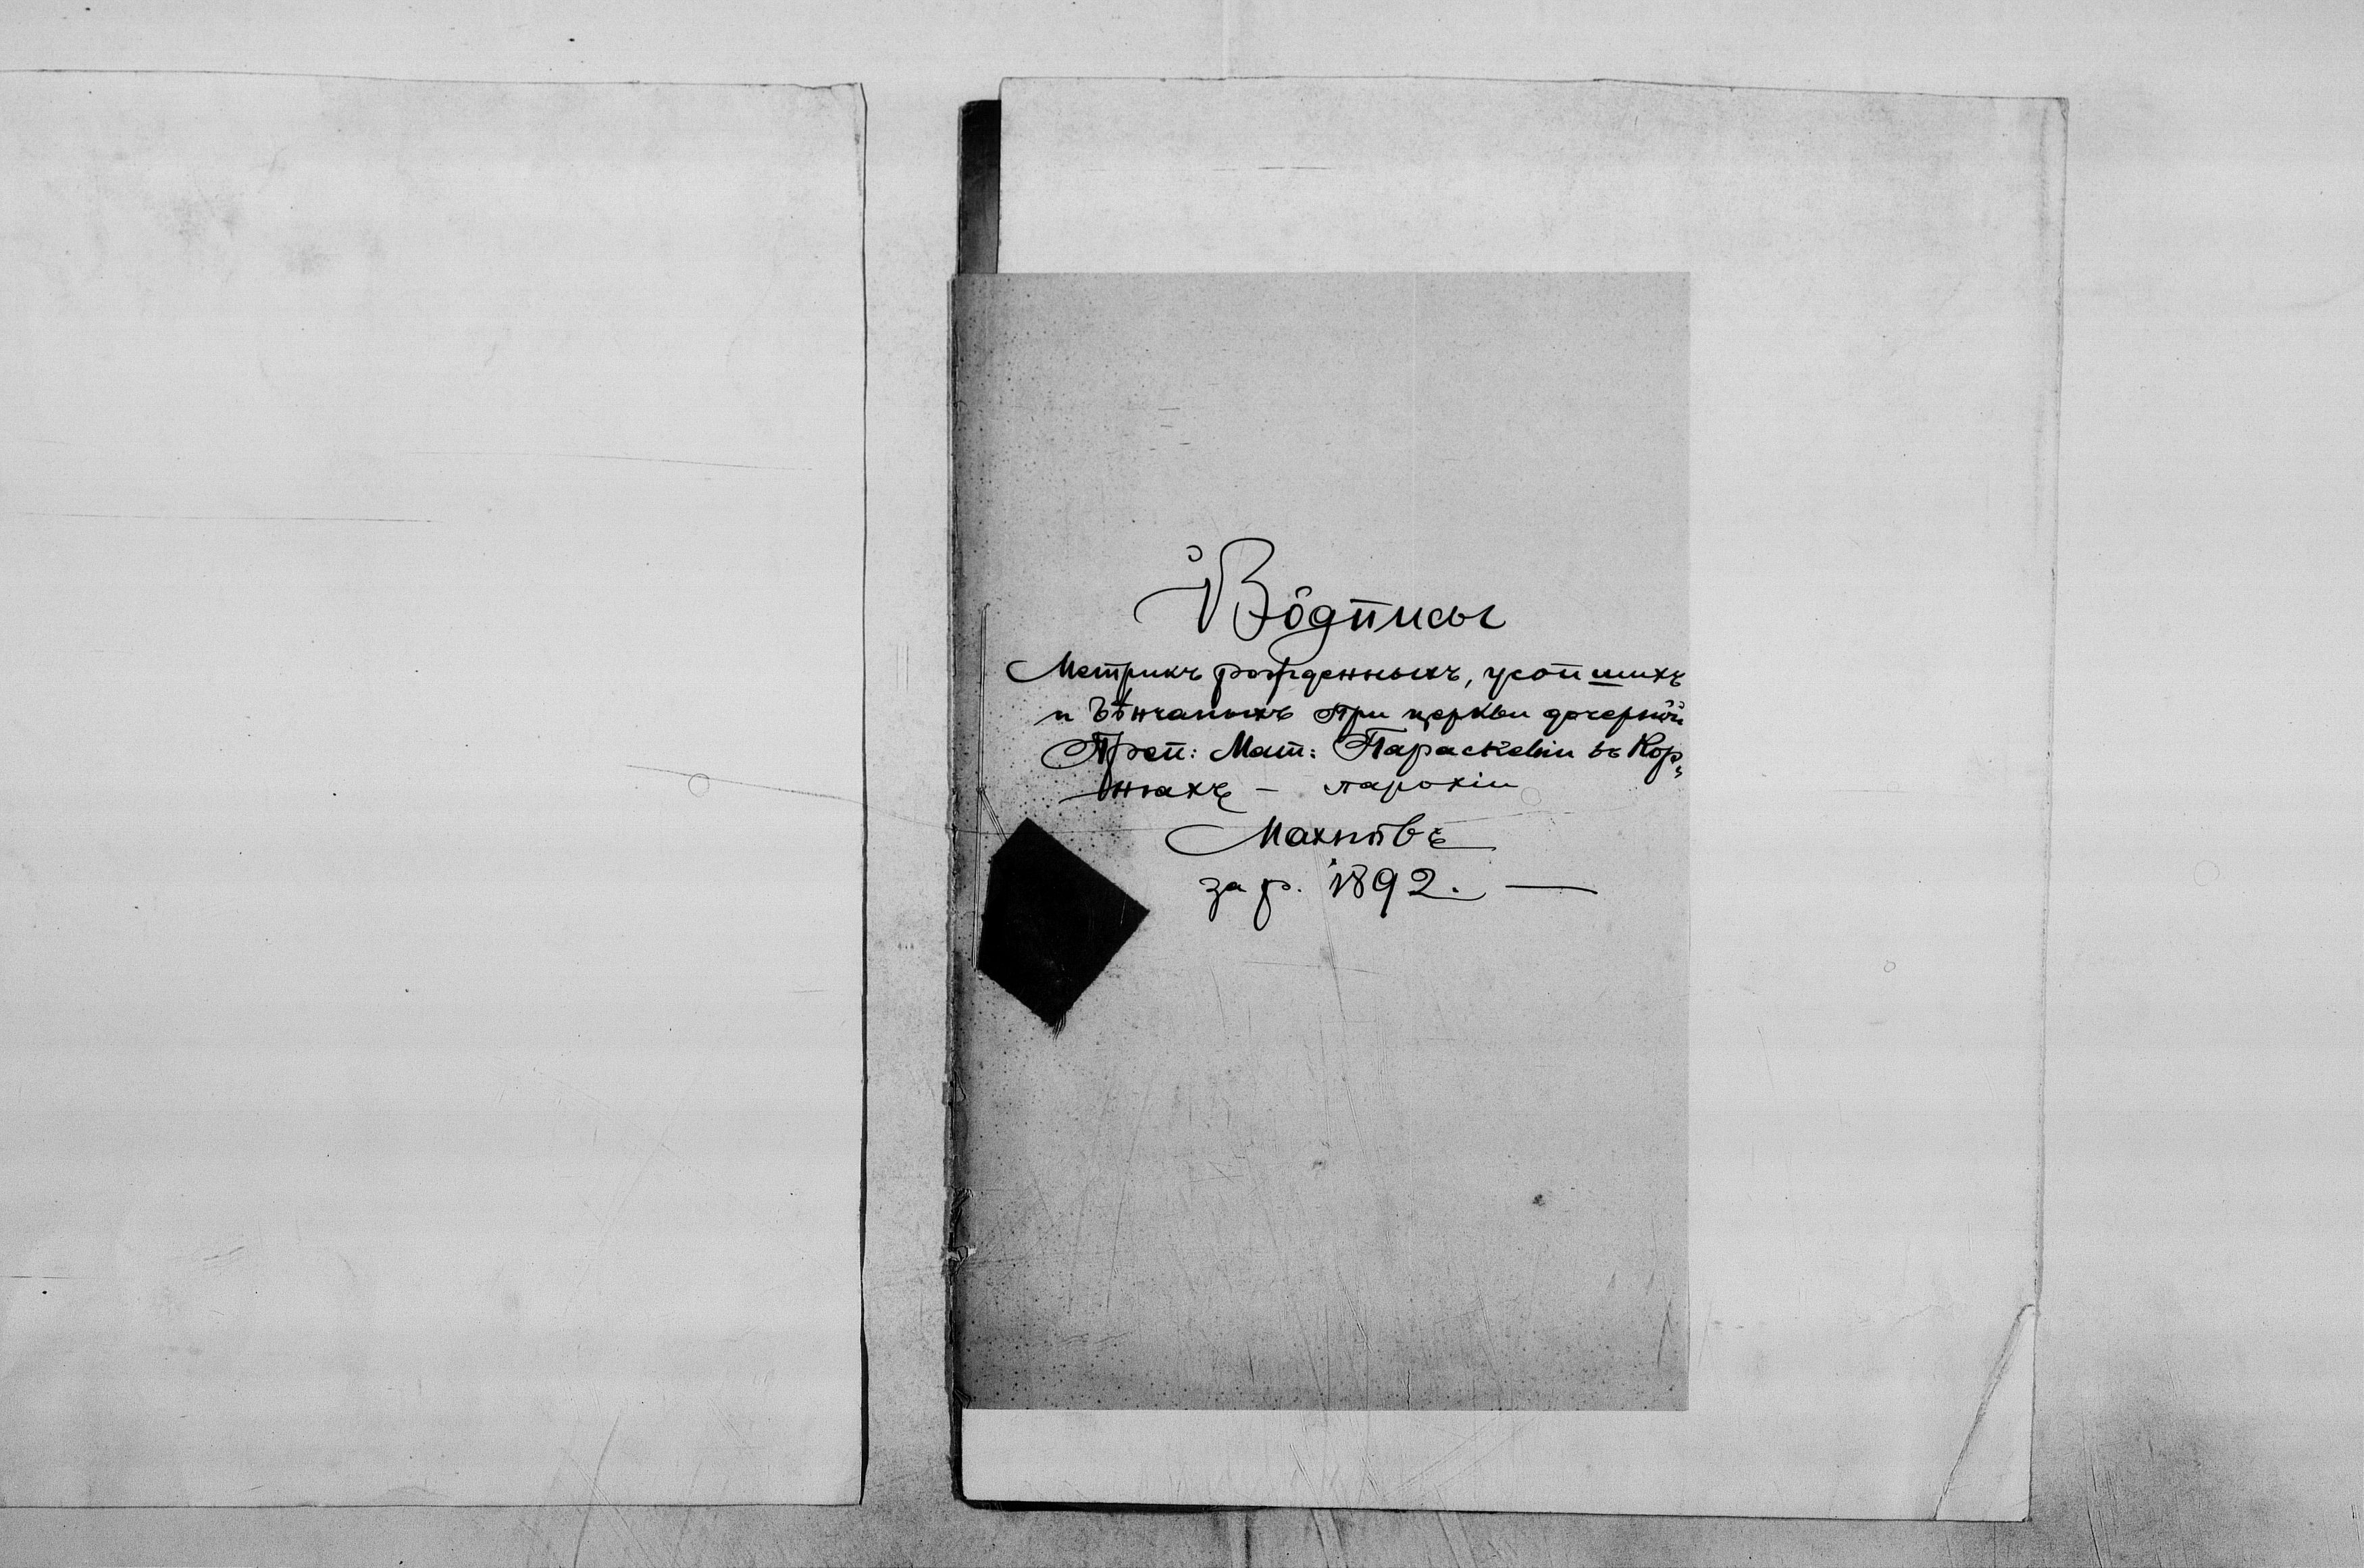 Вôдписы
Метрикъ рожденныхъ, усопшихъ
и вѣнчаныхъ при церкви дочерной
Преп: Мат: Параскевіи въ Кор„
ньахъ – парохіи
Махнôвъ
за р. 1892. —